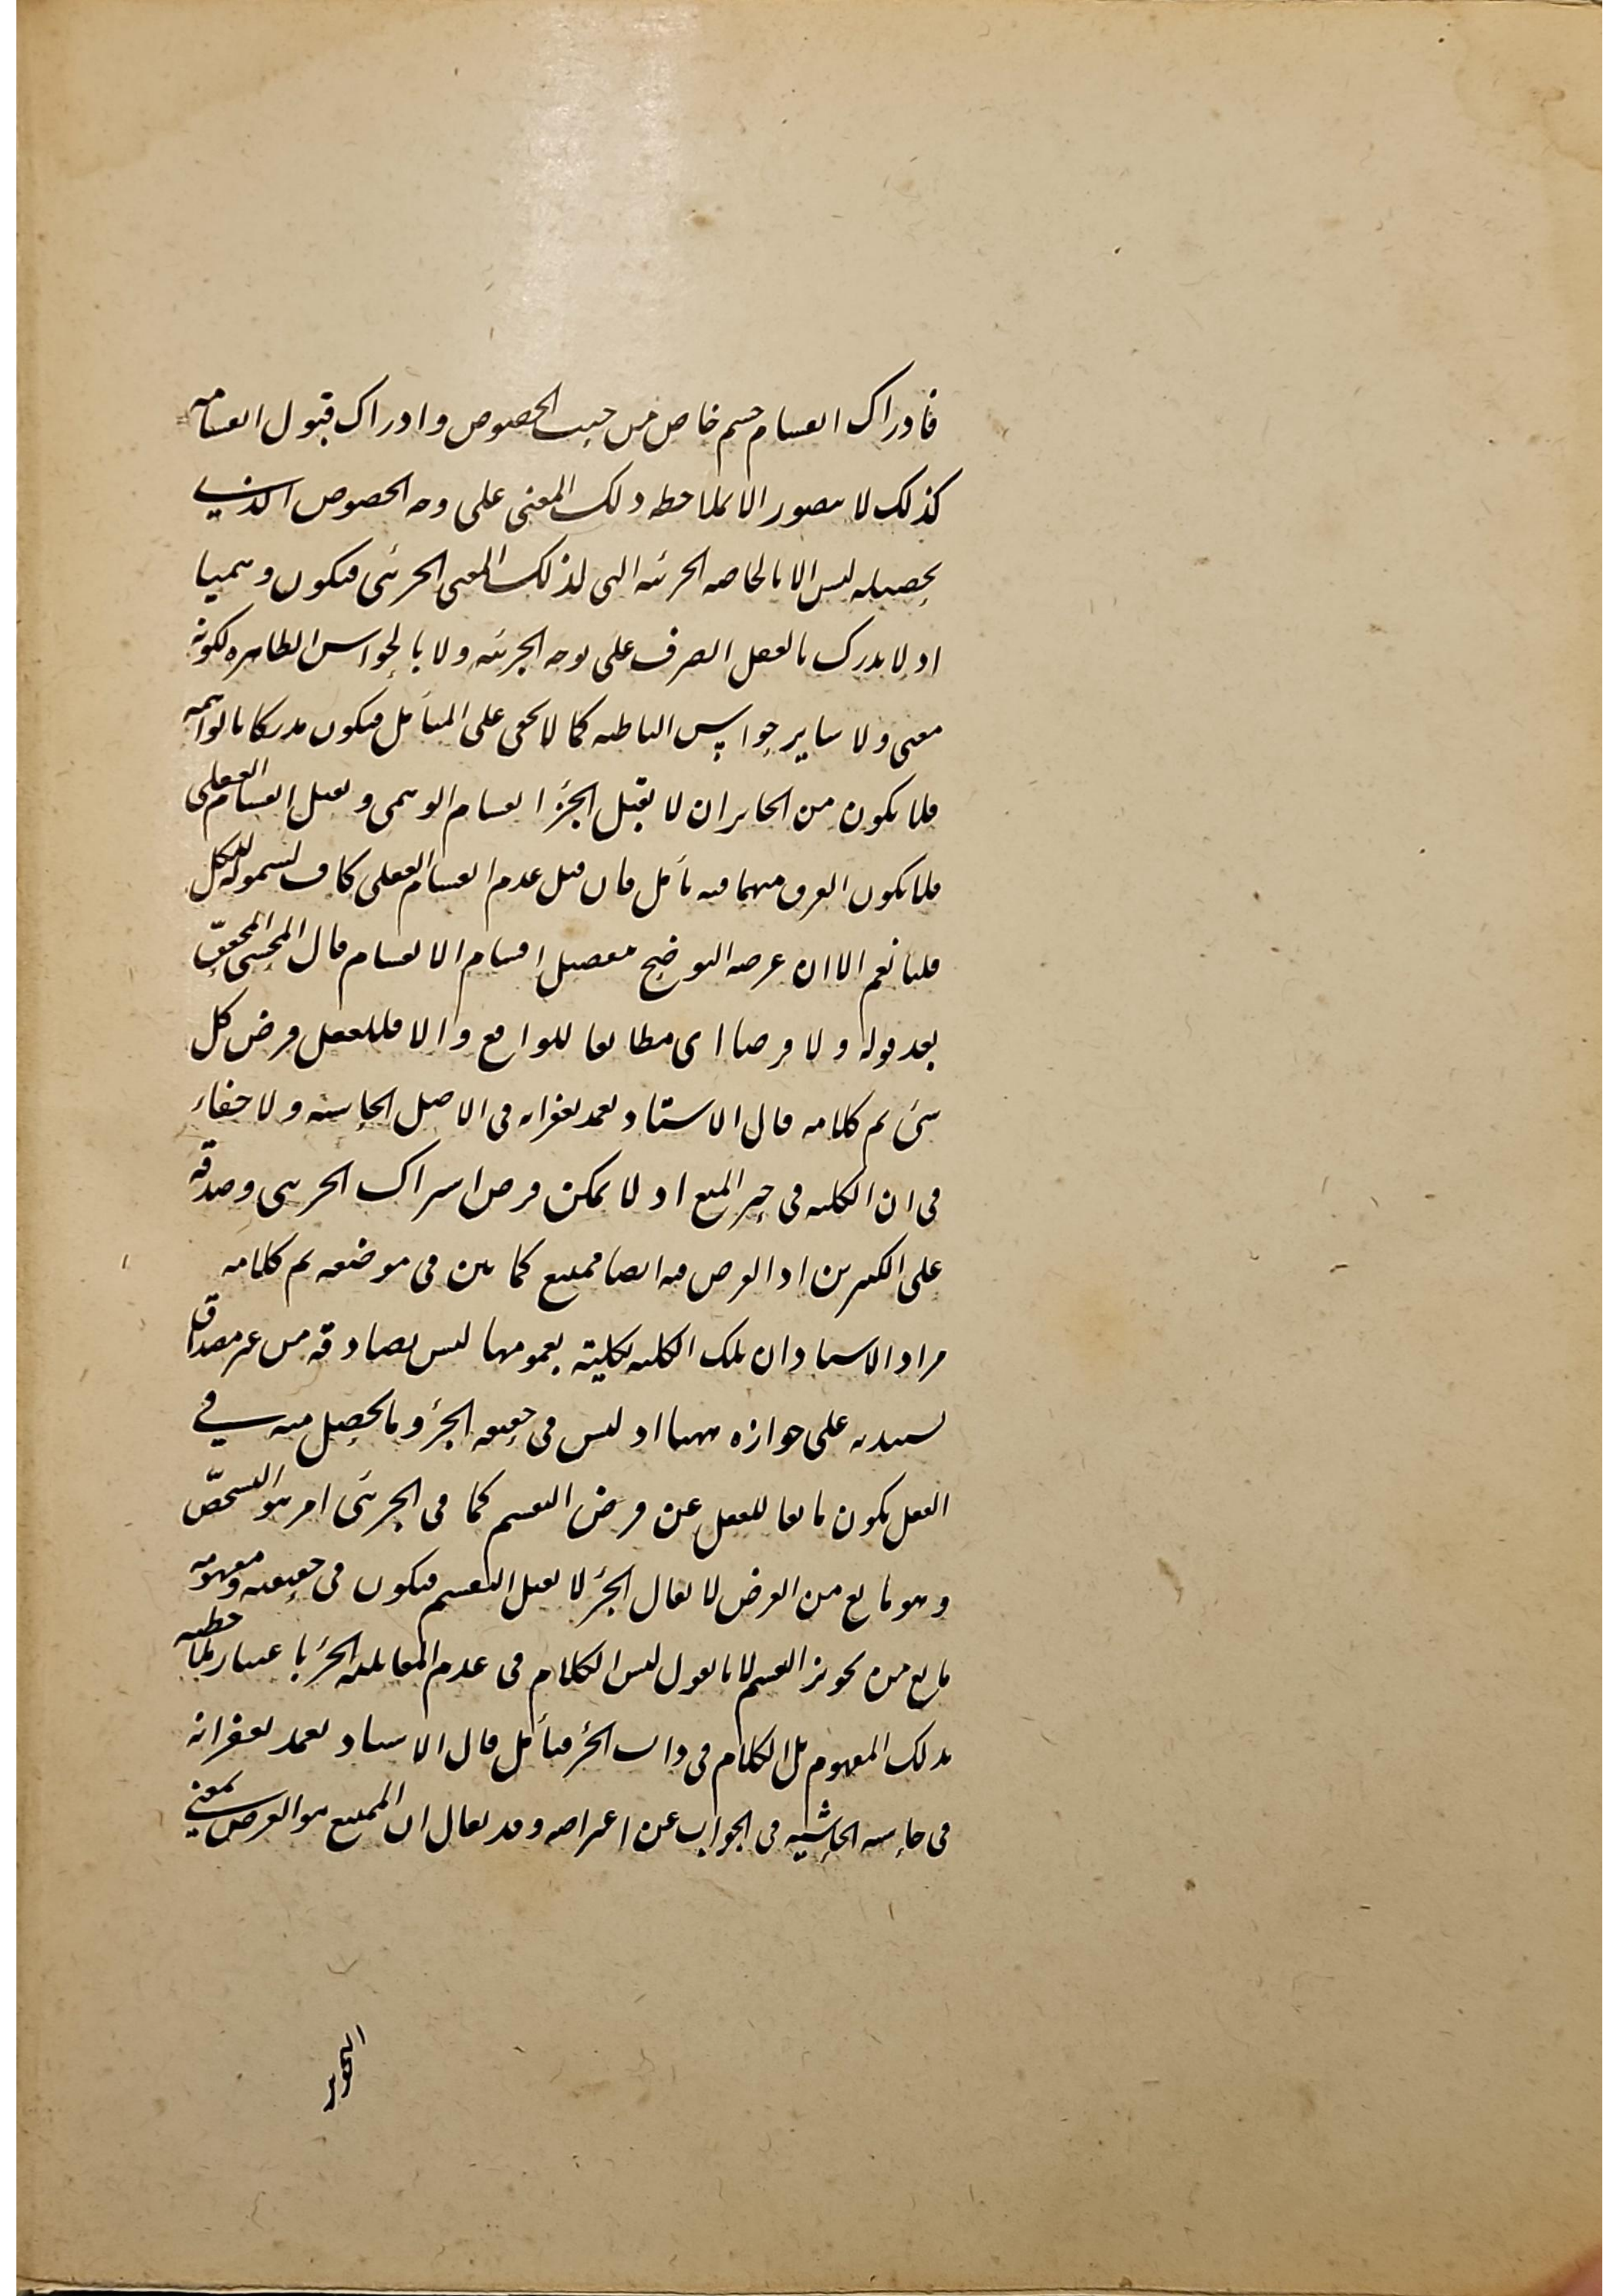 فادراك انقسام جسم خاص من حيث الخصوص وادراك قبول انقسامه
كذلك لا يتصور الا بملاحظه ذلك المعنى على وجه الخصوص الذى
تحصيله ليس الا بالخاصه الجزئيه التى لذلك المعنى الجزئى فيكون وهميا
اذ لا يدرك بالعقل الصرف على وجه الجزئيه ولا بالحواس الظاهره لكونه
معنى ولا ساير حواس الباطنه كما لا يخفى على المتأمل فيكون مدركا بالواهمه
فلا يكون من الجايز ان لا يقبل الجزء انقسام الوهمى ويقبل انقسام العقلى
فلا يكون الفرق بينهما فيه تأمل فان قيل عدم انقسام العقلى كاف لشموله للكل
قلنا نعم الا ان غرضه التوضيح بتفصيل اقسام الانقسام قال المحشى المحقق
بعد قوله ولا فرضا اى مطابقا للواقع والا فللعقل فرض كل
شئ تم كلامه قال الاستاد تغمد بغفرانه فى الاصل الحاشيه ولا خفاء
فى ان الكليه فى حيز المنع اذ لا يمكن فرض اشتراك الجزئى وصدقه
على الكثيرين اذ الفرض فيه ايضا ممتنع كما بين فى موضعه تم كلامه
مراد الاستاد ان تلك الكليه بكليته بعمومها ليس بصادقه من غير مصداق
على جوازه ههنا اذ ليس فى حقيقه الجزء وما يحصل منه فى
العقل يكون مانعا للعقل عن فرض التقسيم كما فى الجزئى امر هو التشخّص
وهو مانع من الفرض لا يقال الجزء لا يقبل التقسيم فيكون فى حقيقته ومفهومه
مانع من تجويز القسم لانا نقول ليس الكلام فى عدم القابليه الجزء باعتبار ملاحظته
بذلك المفهوم بل الكلام فى ذات الجزء فتأمل قال الاستاد تغمد بغفرانه
فى حاشيه الحاشيه فى الجواب عن اعتراضه وقد يقال ان الممتنع هو الفرض بمعنى
التجويز